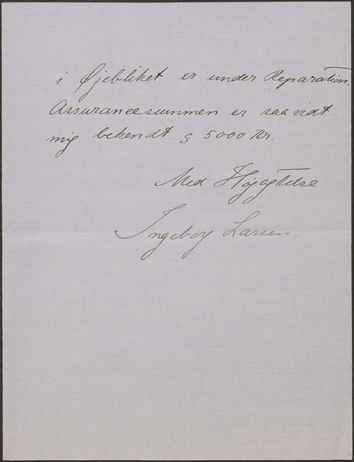 i Øjebliket er under Reparation.
Assurancesummen er saavidt
mig bekendt 5000 Kr.
Med Højagtelse
Ingeborg Larsen